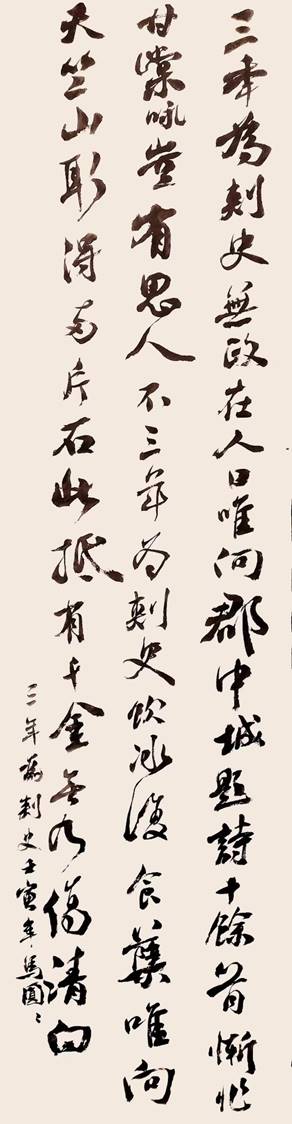 三年為刺史無政在人口唯向郡中城題詩十餘首慚非
甘棠咏豈有思人不三年為刺史飲冰復食蘗唯向
天竺山取得兩片石此抵有千金無乃傷清白
三年為刺史壬寅年馬圓圓